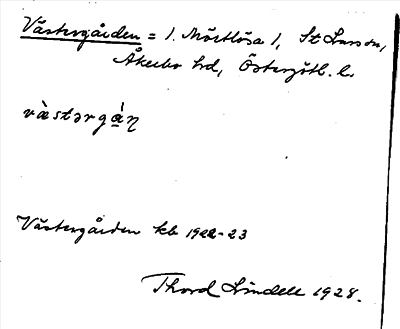 Västergården = 1. Mörtlösa 1, St Lars sn,
Åkerbo hd, Östergötl. l.
vàstərgá̱ɳ
Västergården kb 1922-23
Thord Lindell 1928.